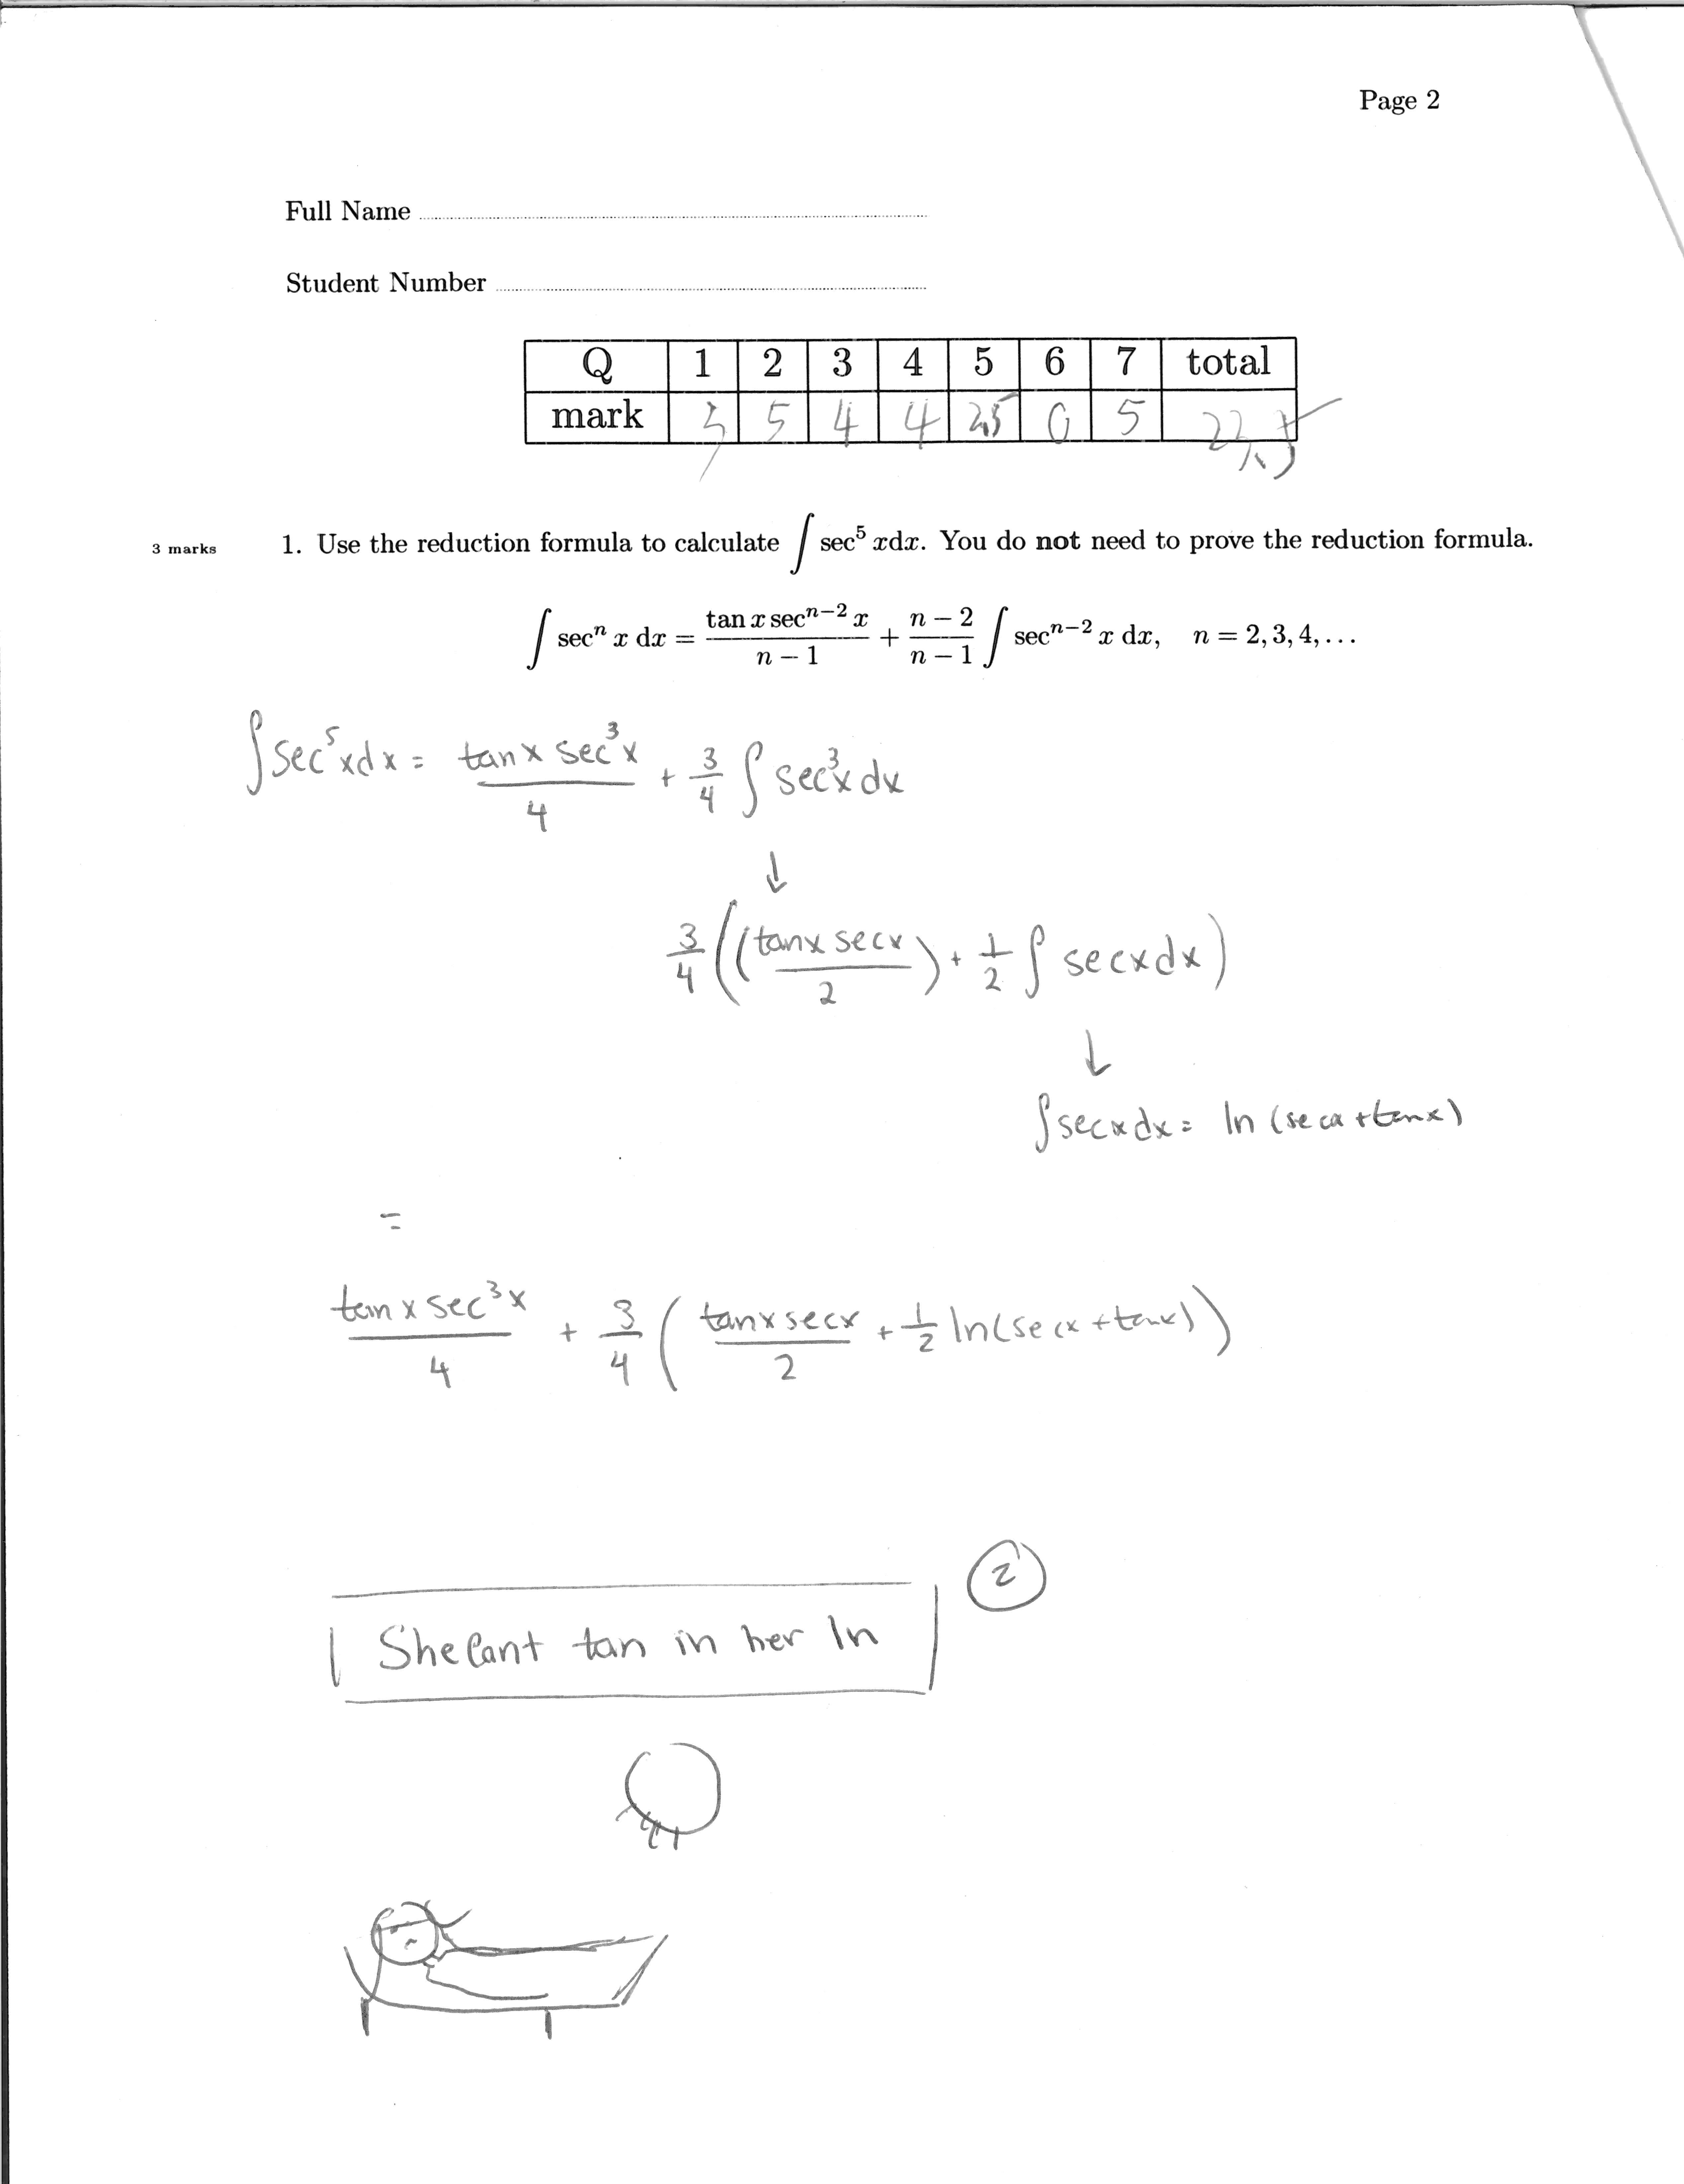 Page 2
Full Name
Student Number
Q 1 2 3 4 5 6 7 total
mark 3 5 4 4 2.5 0 5
3 marks 1. Use the reduction formula to calculate ∫ sec⁵ xdx. You do not need to prove the reduction formula.
∫ secⁿ x dx = (tan x secⁿ⁻² x)/(n − 1) + (n − 2)/(n − 1) ∫ secⁿ⁻² x dx, n = 2, 3, 4, . . .
∫sec⁵xdx = (tanx sec³x)/4 + 3/4 ∫ sec³x dx
↓
3/4 ((tanx secx)/2) + 1/2 ∫ secxdx)
↓
∫secxdx = ln (secx + tanx)
=
(tanx sec³x)/4 + 3/4 ( (tanx secx)/2 + 1/2 ln(secx + tanx))
2
She Cant tan in her ln